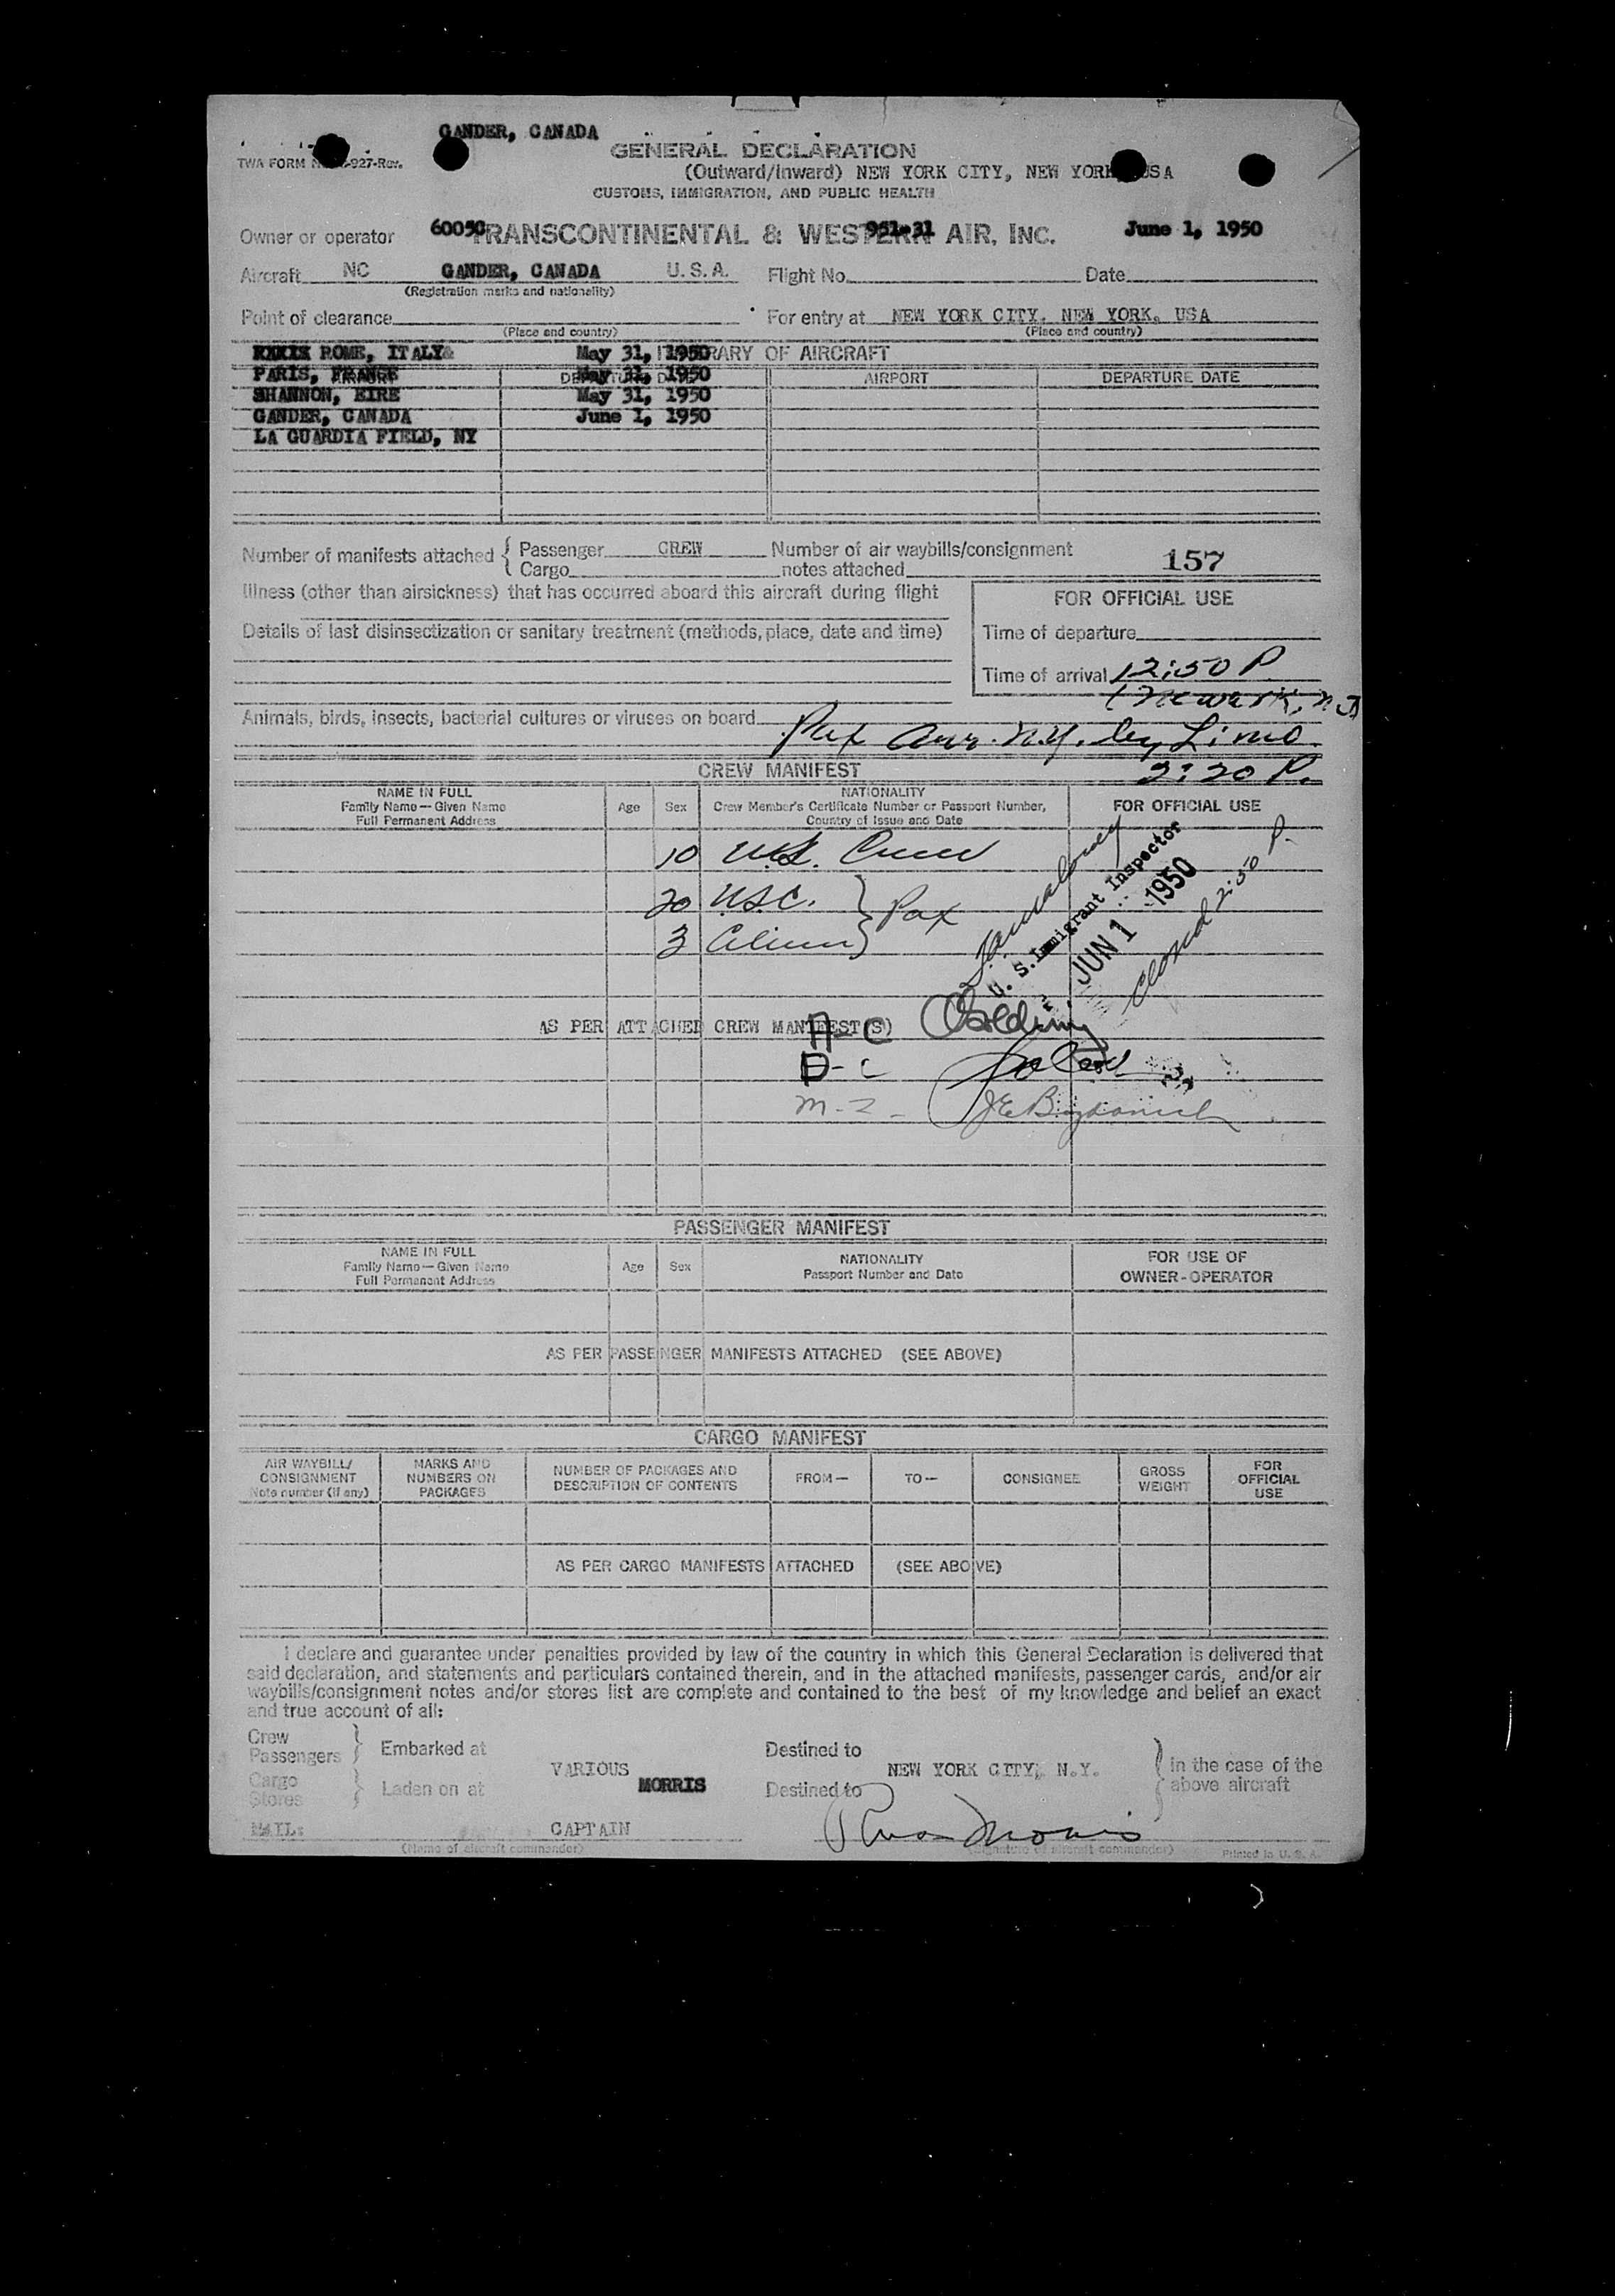 GANDER, CANADA
GENERAL DECLARATION
TWA FORM 927-Rev.
(Outward/Inward) NEW YORK CITY, NEW YORK, USA
CUSTOMS, IMMIGRATION, AND PUBLIC HEALTH
Owner or operator 6005C TRANSCONTINENTAL & WESTERN AIR, INC. 951-31 June 1, 1950
Aircraft NC GANDER, CANADA U.S.A. Flight No. Date
(Registration marks and nationality)
Point of clearance For entry at NEW YORK CITY, NEW YORK, USA
(Place and country) (Place and country)
ROME, ITALY May 31, 1950 ITINERARY OF AIRCRAFT
PARIS, FRANCE May 31, 1950
AIRPORT DEPARTURE DATE AIRPORT DEPARTURE DATE
SHANNON, EIRE May 31, 1950
GANDER, CANADA June 1, 1950
LA GUARDIA FIELD, NY
Number of manifests attached { Passenger CREW Number of air waybills/consignment 157
Cargo notes attached
Illness (other than airsickness) that has occurred aboard this aircraft during flight
FOR OFFICIAL USE
Details of last disinsectization or sanitary treatment (methods, place, date and time)
Time of departure
Time of arrival 12:50 P.
(Newark, N.J.
Animals, birds, insects, bacterial cultures or viruses on board
Pax arr. N.Y. by Limo
2:20 P.
CREW MANIFEST
NAME IN FULL
Family Name—Given Name
Full Permanent Address
Age Sex
NATIONALITY
Crew Member's Certificate Number or Passport Number,
Country of Issue and Date
FOR OFFICIAL USE
10 U.S. Crew
20 U.S.C. } Pax
3 Aliens
U. S. Immigrant Inspector
JUN 1 1950
closed 2:50 P.
AS PER ATTACHED CREW MANIFEST(S)
A-C Golding
D-C
M-2-
PASSENGER MANIFEST
NAME IN FULL
Family Name—Given Name
Full Permanent Address
Age Sex
NATIONALITY
Passport Number and Date
FOR USE OF
OWNER-OPERATOR
AS PER PASSENGER MANIFESTS ATTACHED (SEE ABOVE)
CARGO MANIFEST
AIR WAYBILL/
CONSIGNMENT
Note number (if any)
MARKS AND
NUMBERS ON
PACKAGES
NUMBER OF PACKAGES AND
DESCRIPTION OF CONTENTS
FROM—
TO—
CONSIGNEE
GROSS
WEIGHT
FOR
OFFICIAL
USE
AS PER CARGO MANIFESTS ATTACHED (SEE ABOVE)
I declare and guarantee under penalties provided by law of the country in which this General Declaration is delivered that
said declaration, and statements and particulars contained therein, and in the attached manifests, passenger cards, and/or air
waybills/consignment notes and/or stores list are complete and contained to the best of my knowledge and belief an exact
and true account of all:
Crew
Passengers } Embarked at Destined to
VARIOUS NEW YORK CITY, N.Y. } in the case of the
Cargo
Stores } Laden on at MORRIS Destined to above aircraft
MAIL: CAPTAIN
(Name of aircraft commander) (Signature of aircraft commander) Printed in U. S. A.